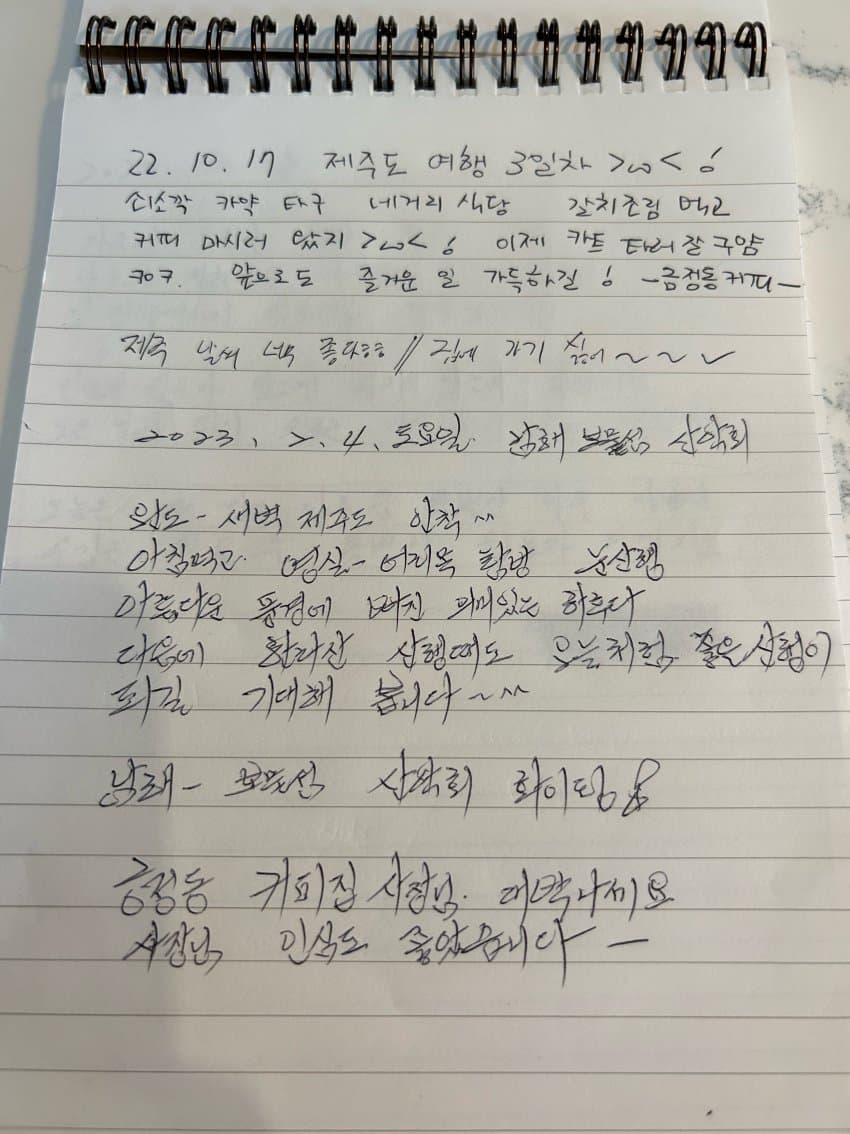 22. 10. 17 제주도 여행 3일차 >ω< !
쇠소깍 카약 타구 네거리 식당 갈치조림 먹고
커피 마시러 왔지 >ω< ! 이제 카트 타러 잘 구얌
앞으로도 즐거운 일 가득하길 ! -금정동커피-
제주 날씨 너무 좋다ㅎㅎ // 집에 가기 싫어~~~
2023. 2. 4. 토요일. 남해 보물섬 산악회
완도 - 새벽 제주도 안착 ^^
아침먹고 영실 - 어리목 탐방 눈산행
아름다운 풍경에 빠진 의미있는 하루다
다음에 한라산 산행때도 오늘처럼 좋은 산행이
되길 기대해 봅니다~^^
남해 - 보물섬 산악회 화이팅!
금정동 커피집 사장님. 대박나세요
사장님 인상도 좋았습니다 -